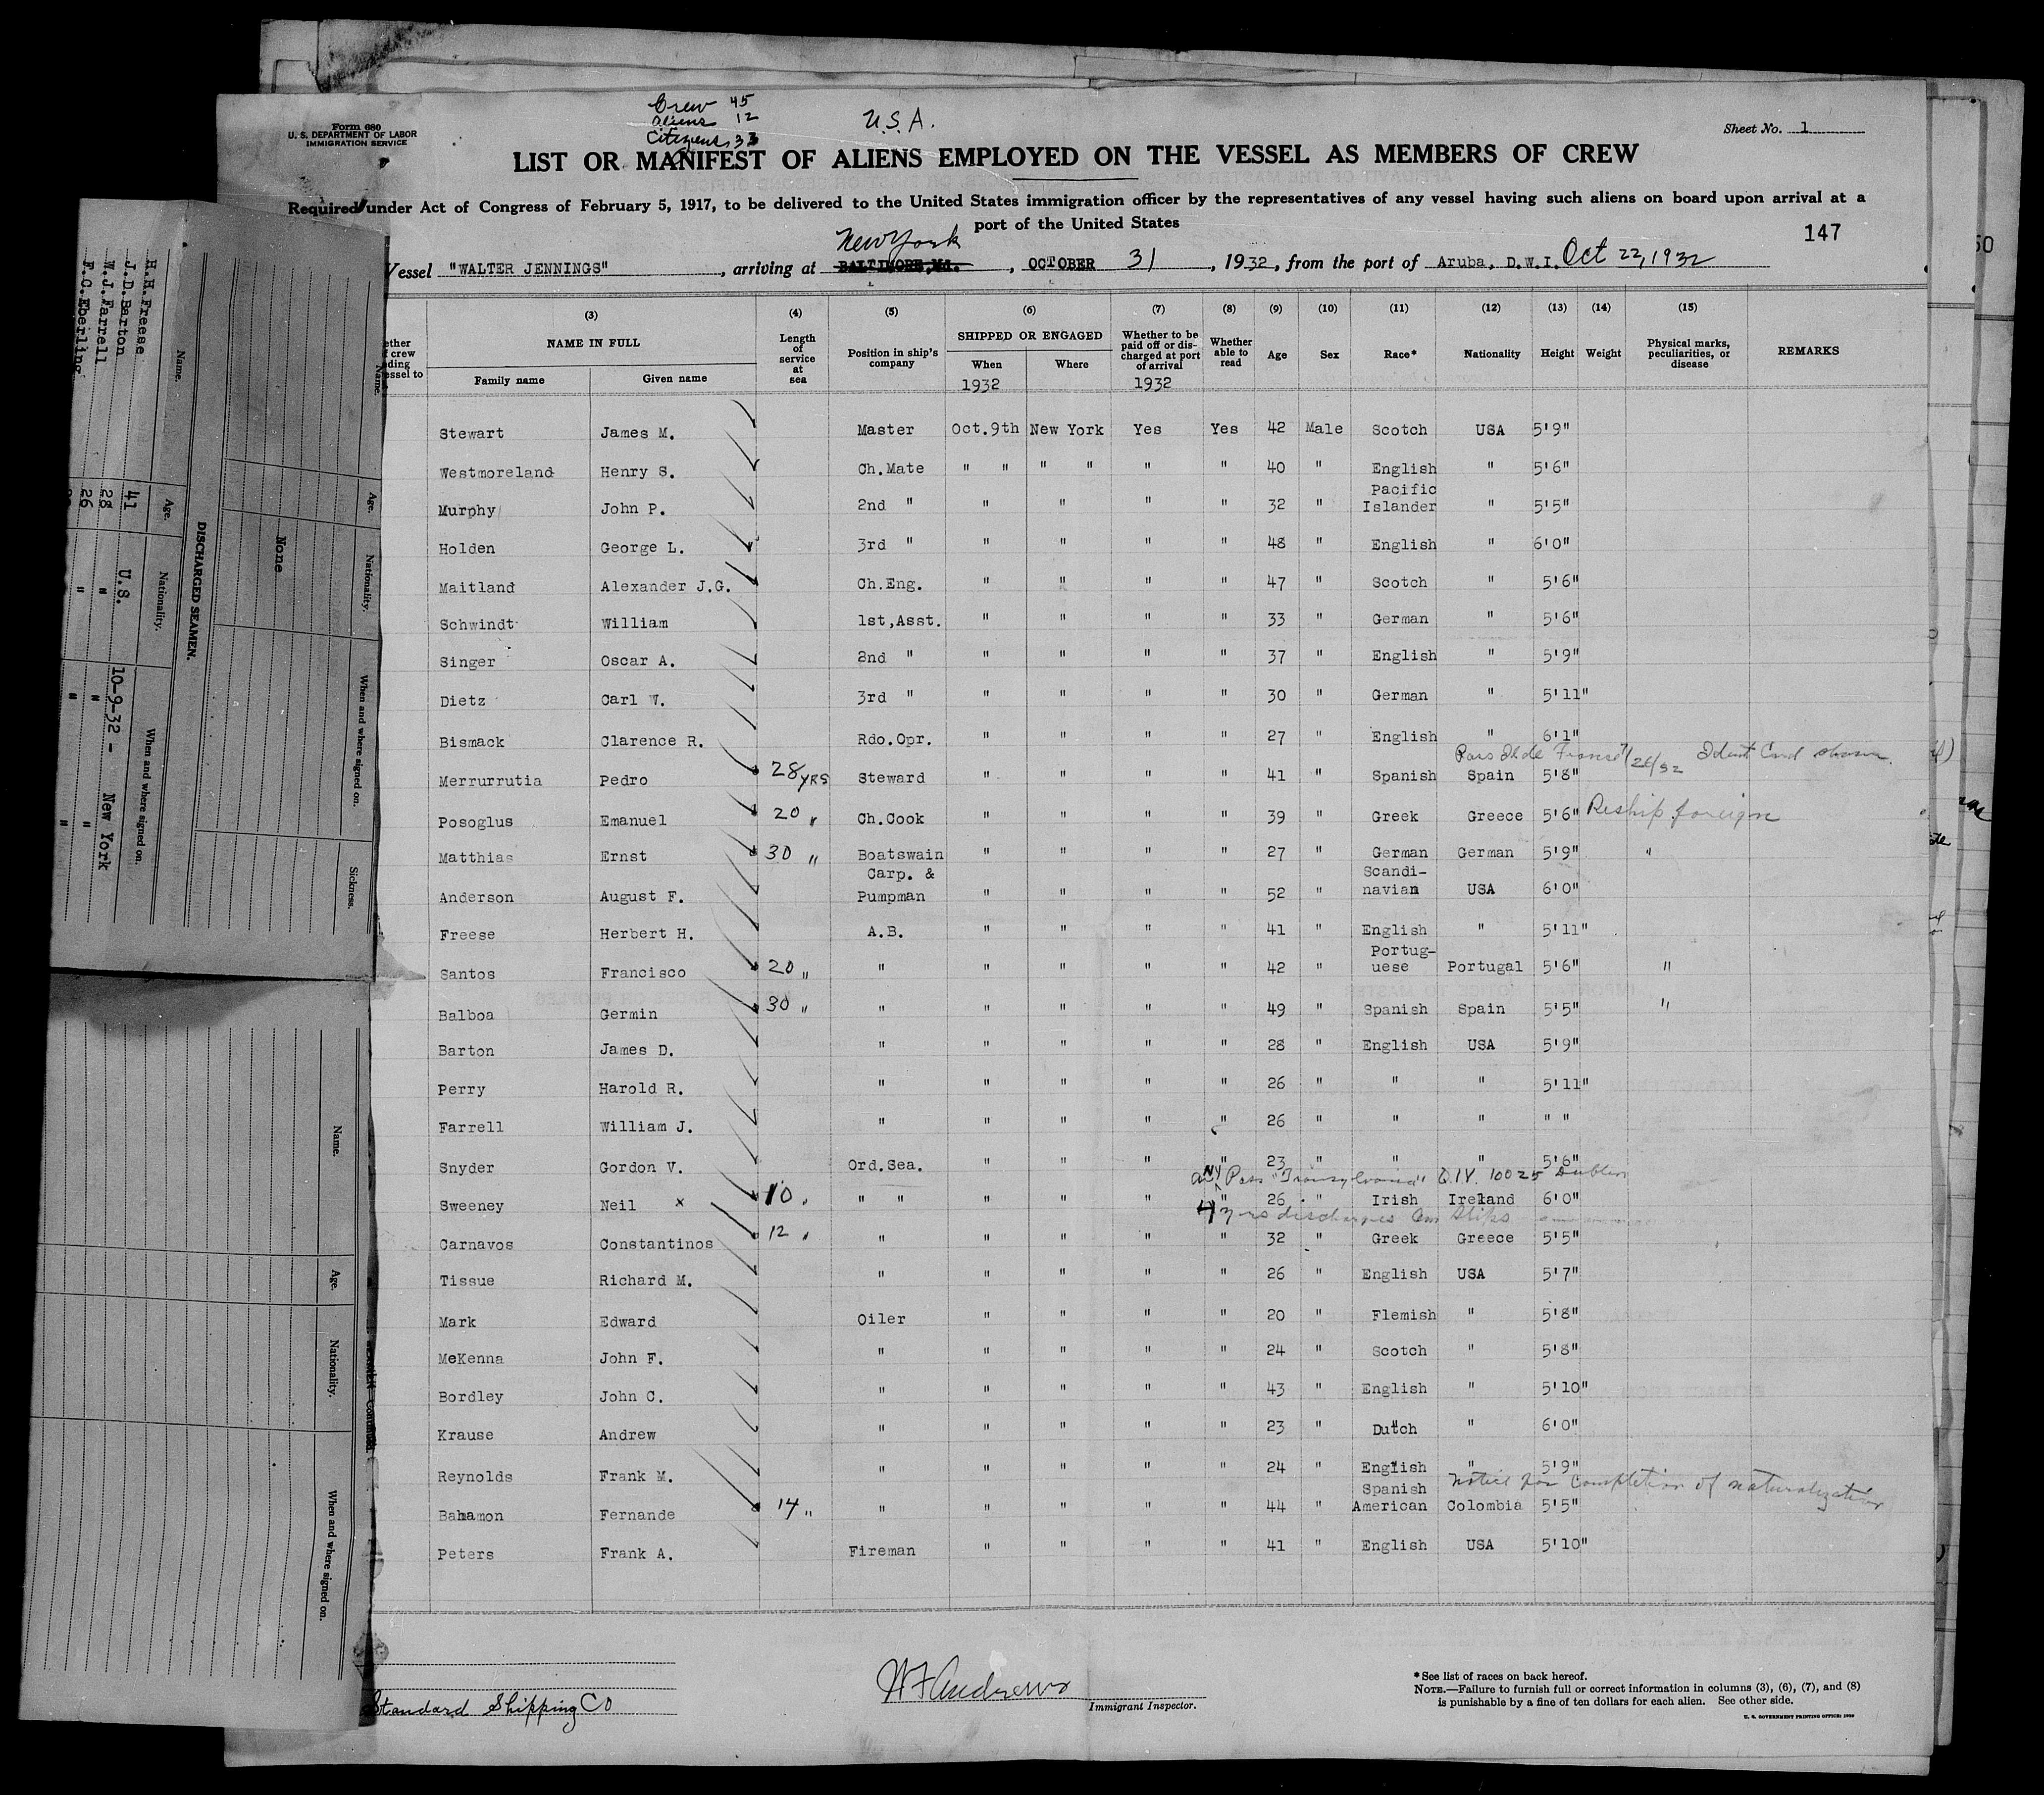 Form 680
U. S. DEPARTMENT OF LABOR
IMMIGRATION SERVICE
Crew 45
Aliens 12
Citizens 33
U.S.A.
Sheet No. 1
LIST OR MANIFEST OF ALIENS EMPLOYED ON THE VESSEL AS MEMBERS OF CREW
Required under Act of Congress of February 5, 1917, to be delivered to the United States immigration officer by the representatives of any vessel having such aliens on board upon arrival at a
port of the United States
147
New York
Vessel "WALTER JENNINGS", arriving at BALTIMORE, Md., OCTOBER 31, 1932, from the port of Aruba, D.W.I. Oct 22, 1932
(3) (4) (5) (6) (7) (8) (9) (10) (11) (12) (13) (14) (15)
NAME IN FULL Length of service at sea Position in ship's company SHIPPED OR ENGAGED Whether to be paid off or discharged at port of arrival Whether able to read Age Sex Race* Nationality Height Weight Physical marks, peculiarities, or disease REMARKS
Family name Given name When Where
1932 1932
Stewart James M. Master Oct.9th New York Yes Yes 42 Male Scotch USA 5'9"
Westmoreland Henry S. Ch.Mate " " " " " " 40 " English " 5'6"
Murphy John P. 2nd " " " " " 32 " Pacific Islander " 5'5"
Holden George L. 3rd " " " " " 48 " English " 6'0"
Maitland Alexander J.G. Ch.Eng. " " " " 47 " Scotch " 5'6"
Schwindt William 1st,Asst. " " " " 33 " German " 5'6"
Singer Oscar A. 2nd " " " " " 37 " English " 5'9"
Dietz Carl W. 3rd " " " " " 30 " German " 5'11"
Bismack Clarence R. Rdo.Opr. " " " " 27 " English " 6'1"
Merrurrutia Pedro 28 YRS Steward " " " " 41 " Spanish Spain 5'8"
Posoglus Emanuel 20 " Ch.Cook " " " " 39 " Greek Greece 5'6" Reship foreign
Matthias Ernst 30 " Boatswain " " " " 27 " German German 5'9" "
Anderson August F. Carp. & Pumpman " " " " 52 " Scandi-navian USA 6'0"
Freese Herbert H. A.B. " " " " 41 " English " 5'11"
Santos Francisco 20 " " " " " " 42 " Portug-uese Portugal 5'6" "
Balboa Germin 30 " " " " " " 49 " Spanish Spain 5'5" "
Barton James D. " " " " " 28 " English USA 5'9"
Perry Harold R. " " " " " 26 " " " 5'11"
Farrell William J. " " " " " 26 " " " " "
Snyder Gordon V. Ord.Sea. " " " " 23 " " " 5'6"
NY Pass "Transylvania" Q.I.V. 10025 Dublin
Sweeney Neil x 10 " " " " " " " 26 " Irish Ireland 6'0"
Carnavos Constantinos 12 " " " " " " 32 " Greek Greece 5'5"
Tissue Richard M. " " " " " 26 " English USA 5'7"
Mark Edward Oiler " " " " 20 " Flemish " 5'8"
McKenna John F. " " " " " 24 " Scotch " 5'8"
Bordley John C. " " " " " 43 " English " 5'10"
Krause Andrew " " " " " 23 " Dutch " 6'0"
Reynolds Frank M. " " " " " 24 " English " 5'9"
Notice for completion of naturalization
Bahamon Fernande 14 " " " " " " 44 " Spanish American Colombia 5'5"
Peters Frank A. Fireman " " " " 41 " English USA 5'10"
Standard Shipping Co
Immigrant Inspector.
*See list of races on back hereof.
NOTE.—Failure to furnish full or correct information in columns (3), (6), (7), and (8)
is punishable by a fine of ten dollars for each alien. See other side.
U. S. GOVERNMENT PRINTING OFFICE
Name. Age. Nationality. When and where signed on. Sickness.
None
DISCHARGED SEAMEN.
Name. Age. Nationality. When and where signed on.
H.H.Freese 41 U.S. 10-9-32 - New York
J.D.Barton 28 " " "
W.J.Farrell 26 " " "
F.C.Eberling
Name. Age. Nationality. When and where signed on.